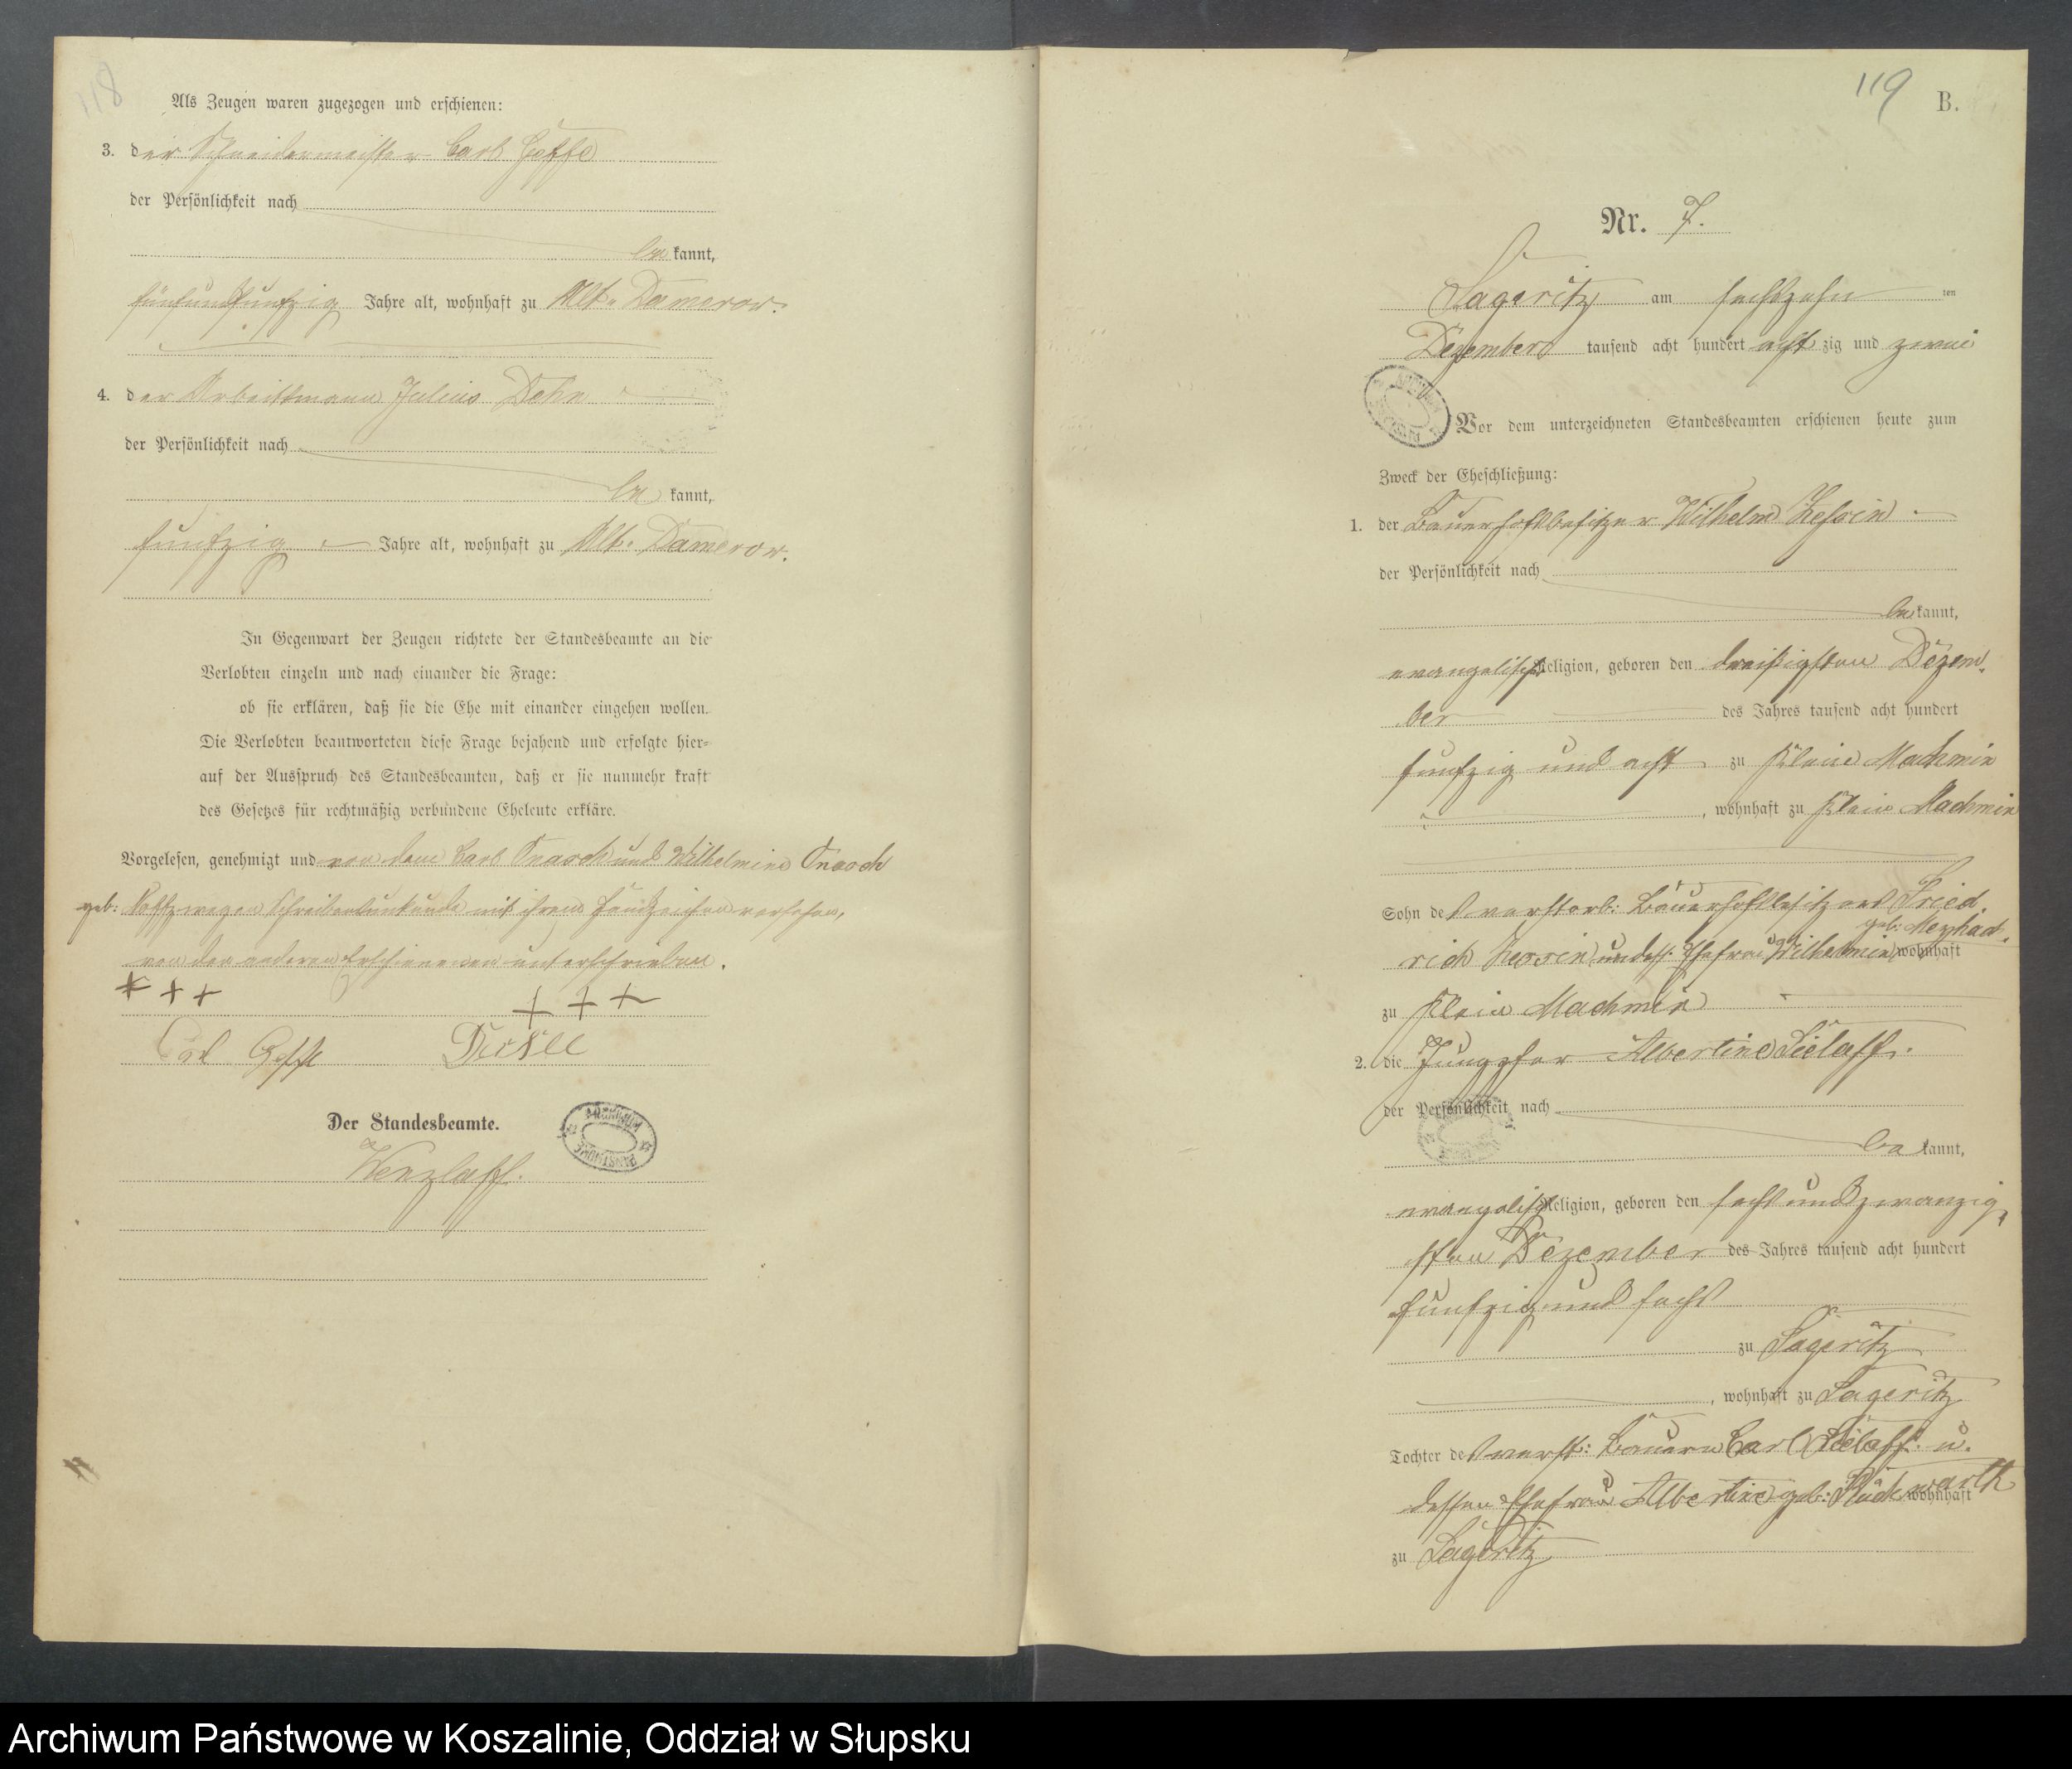 118
Als Zeugen waren zugezogen und erschienen:
3. der Schneidermeister Carl
der Persönlichkeit nach
be kannt,
fünfundfunfzig Jahre alt, wohnhaft zu Alt-Damerow.
4. der Arbeitsmann Julius
der Persönlichkeit nach
be kannt,
funfzig Jahre alt, wohnhaft zu Alt-Damerow.
In Gegenwart der Zeugen richtete der Standesbeamte an die
Verlobten einzeln und nach einander die Frage:
ob sie erklären, daß sie die Ehe mit einander eingehen wollen.
Die Verlobten beantworteten diese Frage bejahend und erfolgte hier-
auf der Ausspruch des Standesbeamten, daß er sie nunmehr kraft
des Gesetzes für rechtmäßig verbundene Eheleute erkläre.
Vorgelesen, genehmigt und von dem Carl und Wilhelmine
geb: wegen Schreibensunkunde mit ihren Handzeichen versehen,
von den anderen Erschienenen unterschrieben.
+ + + + + +
Carl
Der Standesbeamte.
Wenzlaff.
119
B.
Nr. 7.
Lageritz am sechszehn ten
Dezember tausend acht hundert acht zig und zwei
Vor dem unterzeichneten Standesbeamten erschienen heute zum
Zweck der Eheschließung:
1. der Bauerhofsbesitzer Wilhelm Kessin
der Persönlichkeit nach
be kannt,
evangelischer Religion, geboren den dreißigsten Dezem-
ber des Jahres tausend acht hundert
funfzig und acht zu Klein Machmin
, wohnhaft zu Klein Machmin
Sohn des verstorb: Bauerhofsbesitzers Fried-
rich Kessin und dess: Ehefrau Wilhelmine geb: wohnhaft
zu Klein Machmin
2. die Jungfer Albertine Sielaff.
der Persönlichkeit nach
be kannt,
evangelischer Religion, geboren den sechs und zwanzig-
sten Dezember des Jahres tausend acht hundert
funfzig und sechs
zu Lageritz
, wohnhaft zu Lageritz
Tochter des verst: Bauern Carl Sielaff u.
dessen Ehefrau Albertine geb: wohnhaft
zu Lageritz
Archiwum Państwowe w Koszalinie, Oddział w Słupsku